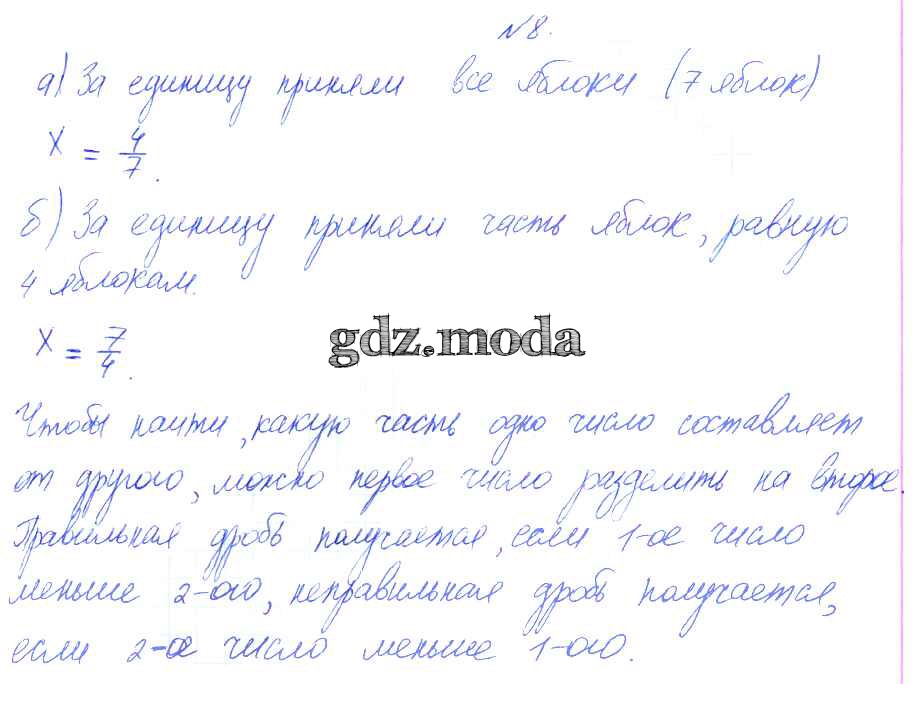 №8.
а) За единицу приняли все яблоки (7 яблок)
x = 4/7.
б) За единицу приняли часть яблок, равную
4 яблокам.
x = 7/4.
gdz.moda
Чтобы найти, какую часть одно число составляет
от другого, можно первое число разделить на второе.
Правильная дробь получается, если 1-ое число
меньше 2-ого, неправильная дробь получается,
если 2-ое число меньше 1-ого.